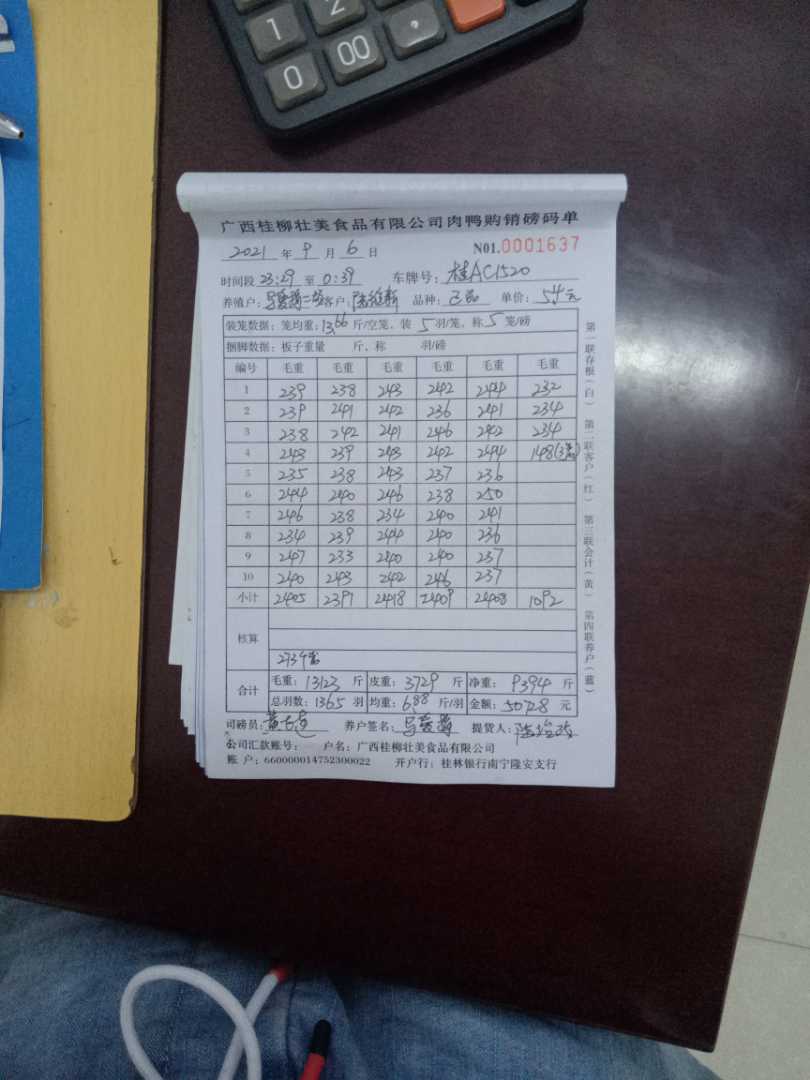 1 2
0 00 ·
广西桂柳壮美食品有限公司肉鸭购销磅码单
2021 年 9 月 6 日 N01.0001637
时间段 23:29 至 0:39 车牌号: 桂AC1520
养殖户: 客户: 品种: 单价: 5.4元
装笼数据: 笼均重: 13.66 斤/空笼、装 5 羽/笼、称 5 笼/磅
捆脚数据: 板子重量 斤、称 羽/磅
编号 毛重 毛重 毛重 毛重 毛重 毛重
1 239 238 243 242 244 232
2 239 241 242 236 241 234
3 238 242 241 246 242 234
4 243 239 243 242 244 148(3笼)
5 235 238 243 237 236
6 244 240 246 238 250
7 246 238 234 240 241
8 234 239 244 240 236
9 247 233 240 240 237
10 240 243 242 246 237
小计 2405 2391 2418 2409 2408 1092
核算
273个笼
合计 毛重: 13123 斤 皮重: 3729 斤 净重: 9394 斤
总羽数: 1365 羽 均重: 6.88 斤/羽 金额: 50728 元
司磅员: 养户签名: 提货人:
公司汇款账号: 户名: 广西桂柳壮美食品有限公司
账 户: 660000014752300022 开户行: 桂林银行南宁隆安支行
第一联存根(白) 第二联客户(红) 第三联会计(黄) 第四联养户(蓝)